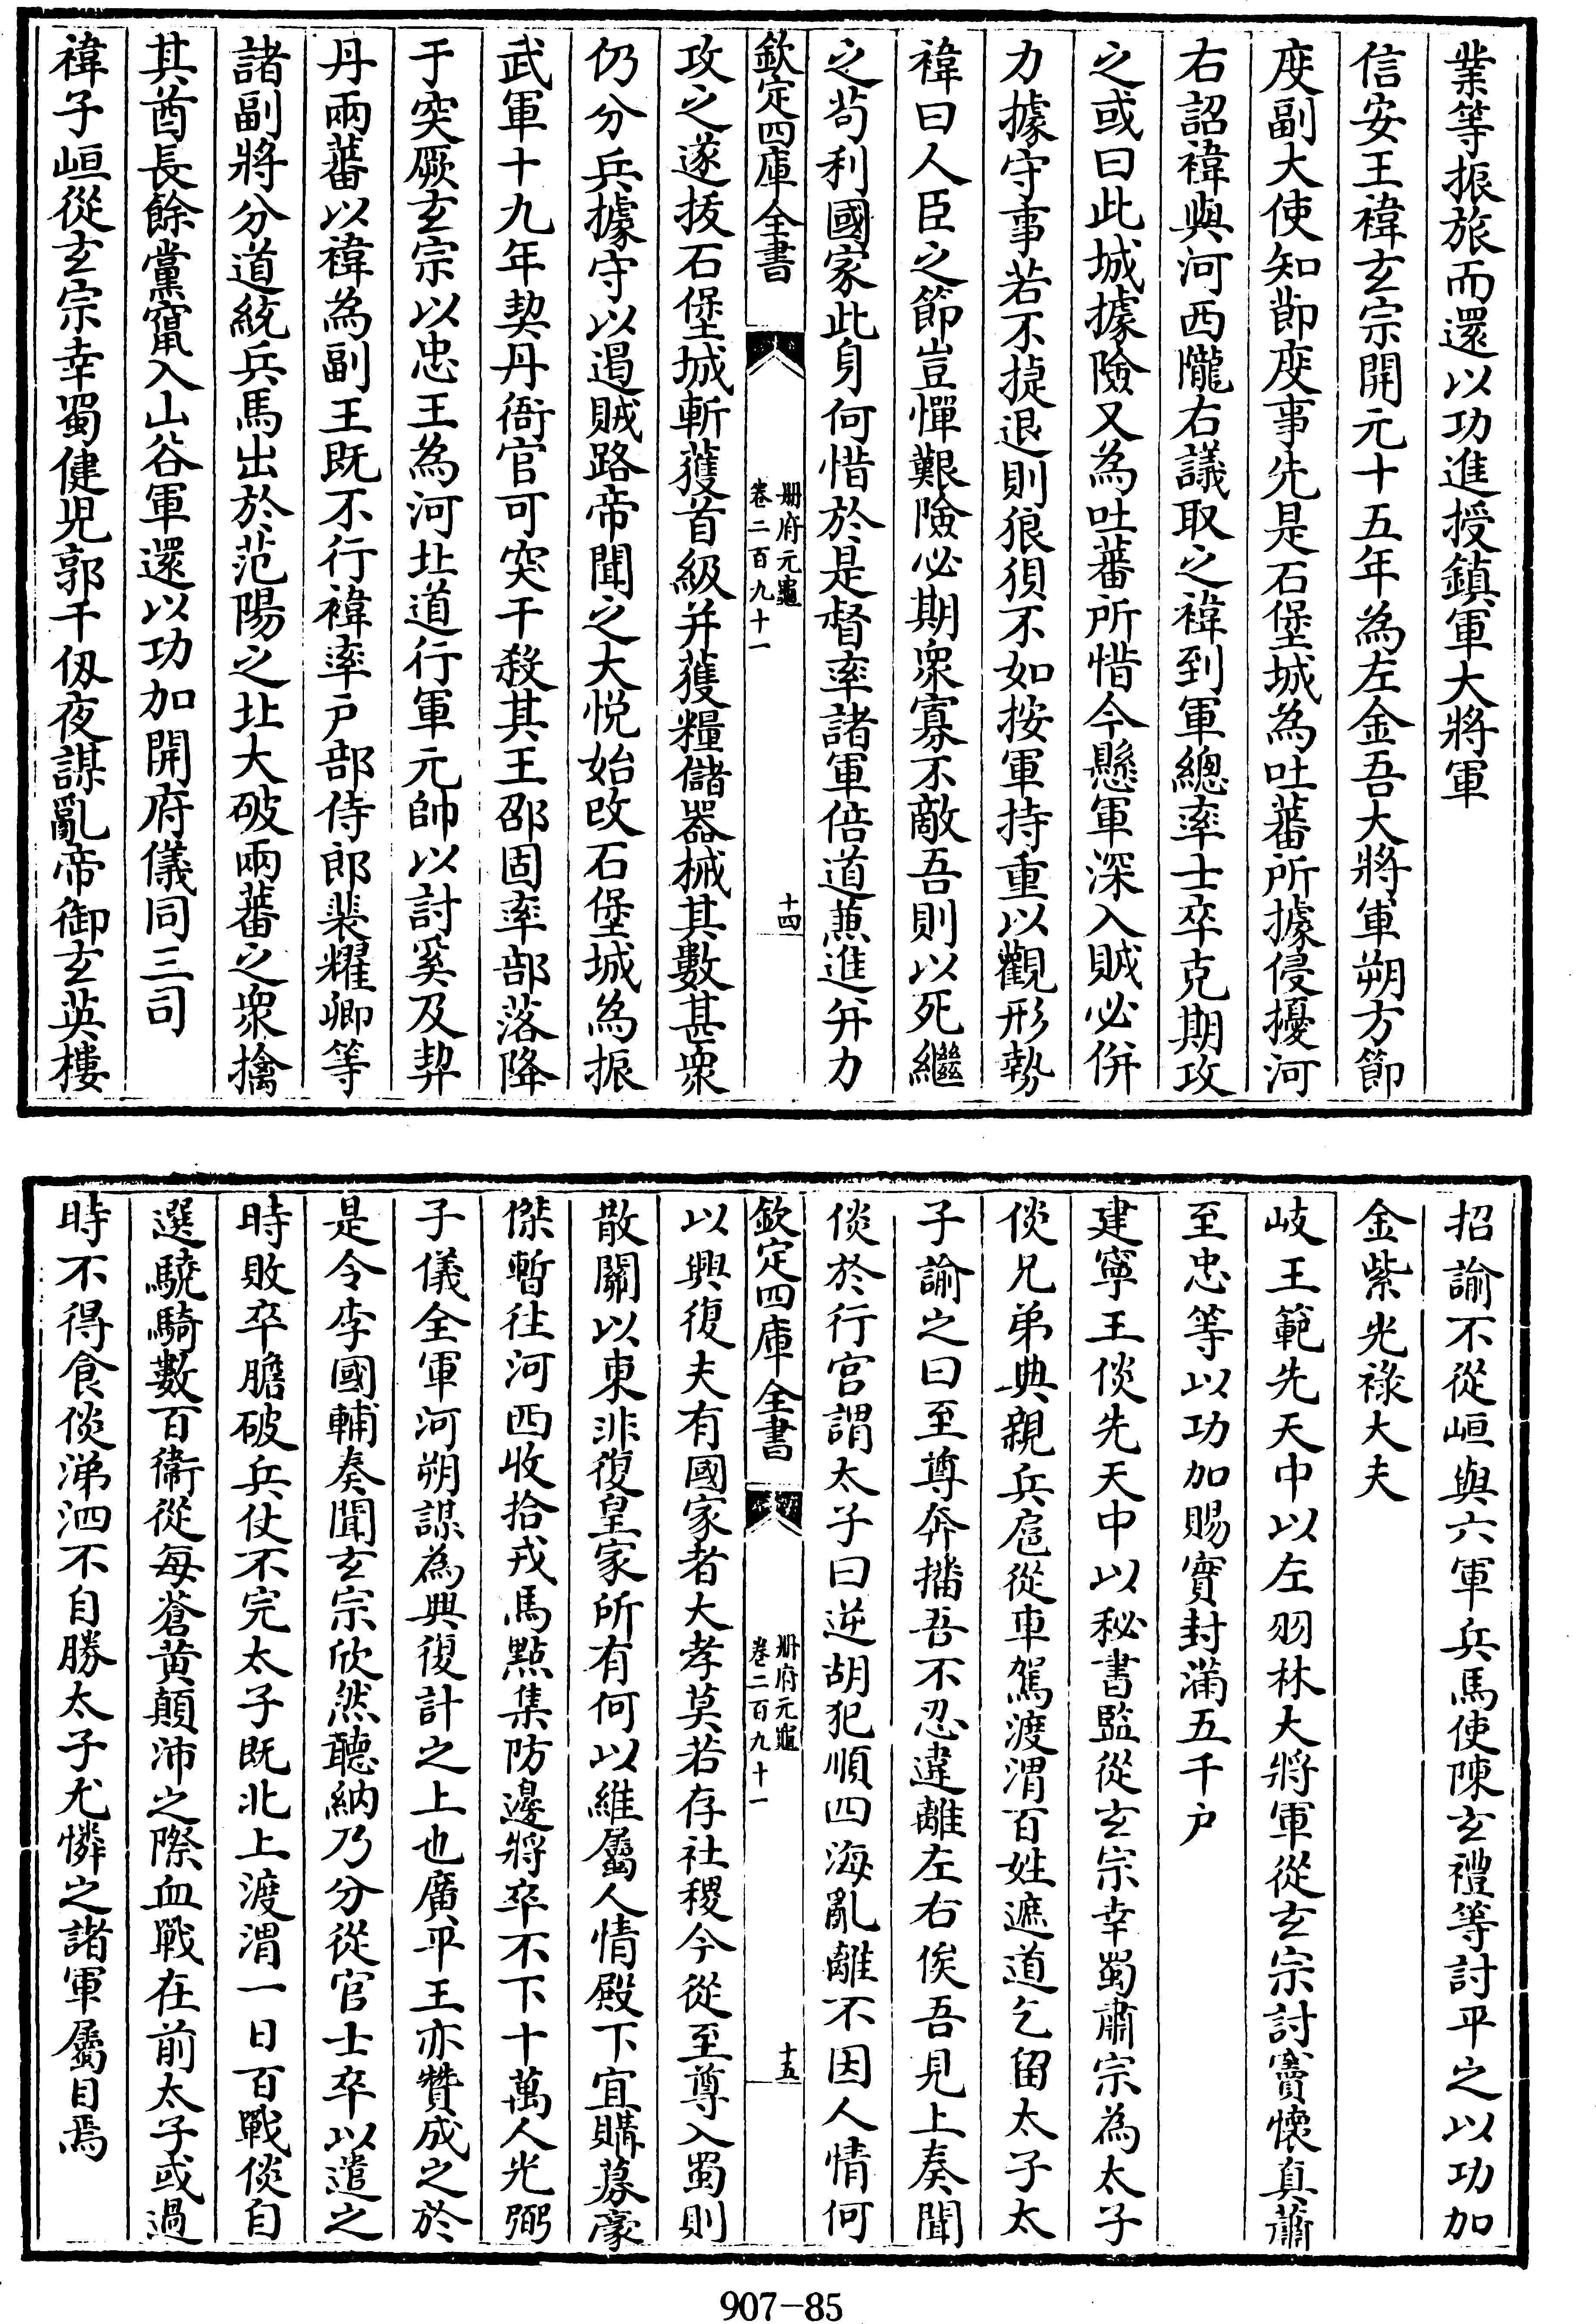 業等振旅而還以功進授鎮軍大將軍
信安王禕玄宗開元十五年為左金吾大將軍朔方節
度副大使知節度事先是石堡城為吐蕃所據侵擾河
右詔禕與河西隴右議取之禕到軍總率士卒克期攻
之或曰此城據險又為吐蕃所惜今懸軍深入賊必併
力據守事若不捷退則狼狽不如按軍持重以觀形勢
禕曰人臣之節豈憚艱險必期衆寡不敵吾則以死繼
之苟利國家此身何惜於是督率諸軍倍道兼進并力
欽定四庫全書
冊府元龜
卷二百九十一
十四
攻之遂拔石堡城斬獲首級并獲糧儲器械其數甚衆
仍分兵據守以遏賊路帝聞之大悅始改石堡城為振
武軍十九年契丹衙官可突干殺其王邵固率部落降
于突厥玄宗以忠王為河北道行軍元帥以討奚及契
丹兩蕃以禕為副王既不行禕率戶部侍郎裴耀卿等
諸副將分道統兵馬出於范陽之北大破兩蕃之衆擒
其酋長餘黨竄入山谷軍還以功加開府儀同三司
禕子峘從玄宗幸蜀健兒郭千仭夜謀亂帝御玄英樓
招諭不從峘與六軍兵馬使陳玄禮等討平之以功加
金紫光祿大夫
岐王範先天中以左羽林大將軍從玄宗討竇懷貞蕭
至忠等以功加賜實封滿五千戶
建寧王倓先天中以秘書監從玄宗幸蜀肅宗為太子
倓兄弟典親兵扈從車駕渡渭百姓遮道乞留太子太
子諭之曰至尊奔播吾不忍違離左右俟吾見上奏聞
倓於行宫謂太子曰逆胡犯順四海亂離不因人情何
欽定四庫全書
冊府元龜
卷二百九十一
十五
以興復夫有國家者大孝莫若存社稷今從至尊入蜀則
散關以東非復皇家所有何以維屬人情殿下宜購募豪
傑暫往河西收拾戎馬點集防邊將卒不下十萬人光弼
子儀全軍河朔謀為興復計之上也廣平王亦贊成之於
是令李國輔奏聞玄宗欣然聽納乃分從官士卒以遣之
時敗卒膽破兵仗不完太子既北上渡渭一日百戰倓自
選驍騎數百衛從每蒼黄顛沛之際血戰在前太子或過
時不得食倓涕泗不自勝太子尤憐之諸軍屬目焉
907-85